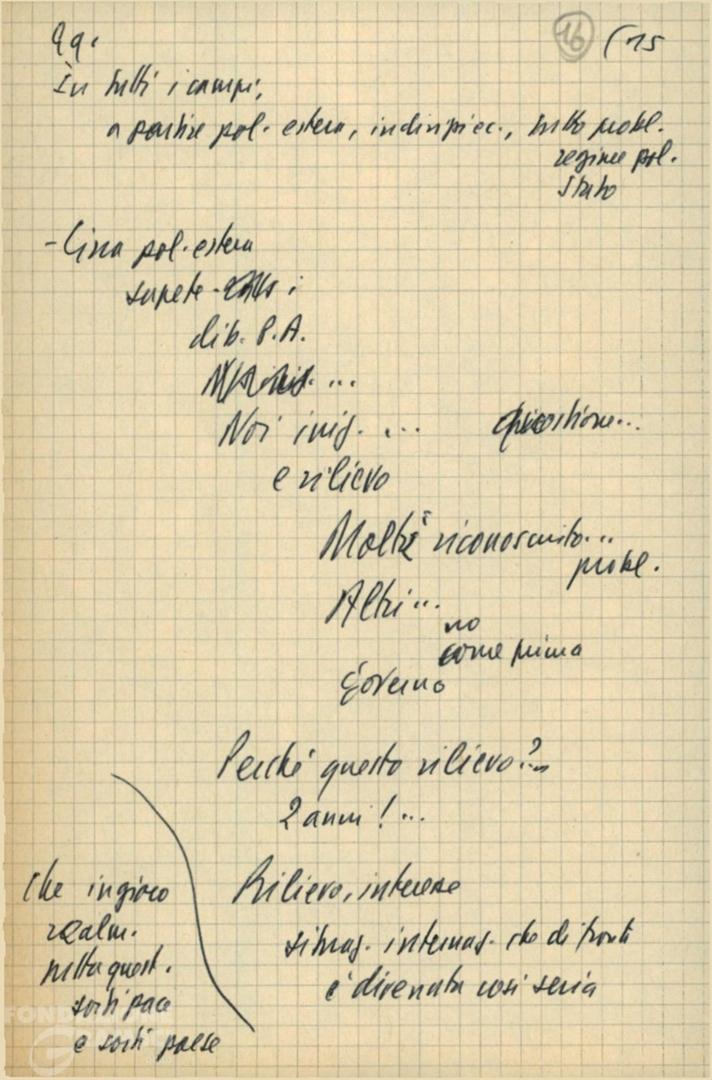 16 (15
In tutti i campi,
a partire pol. estera, indirizzi ec., tutto probl.
regime pol.
Stato
- Cina pol. estera
sapete
dib. P.A.
Noi iniz. ... questione...
e rilievo
Molti riconosciuto...
probl.
Altri...
no
come prima
Governo
Perché questo rilievo?...
2 anni! ...
Che in gioco
realm.
nella quest.
sorti pace
e sorti paese
Rilievo, interesse
situaz. internaz. che di fronti
è divenuta così seria
FOND